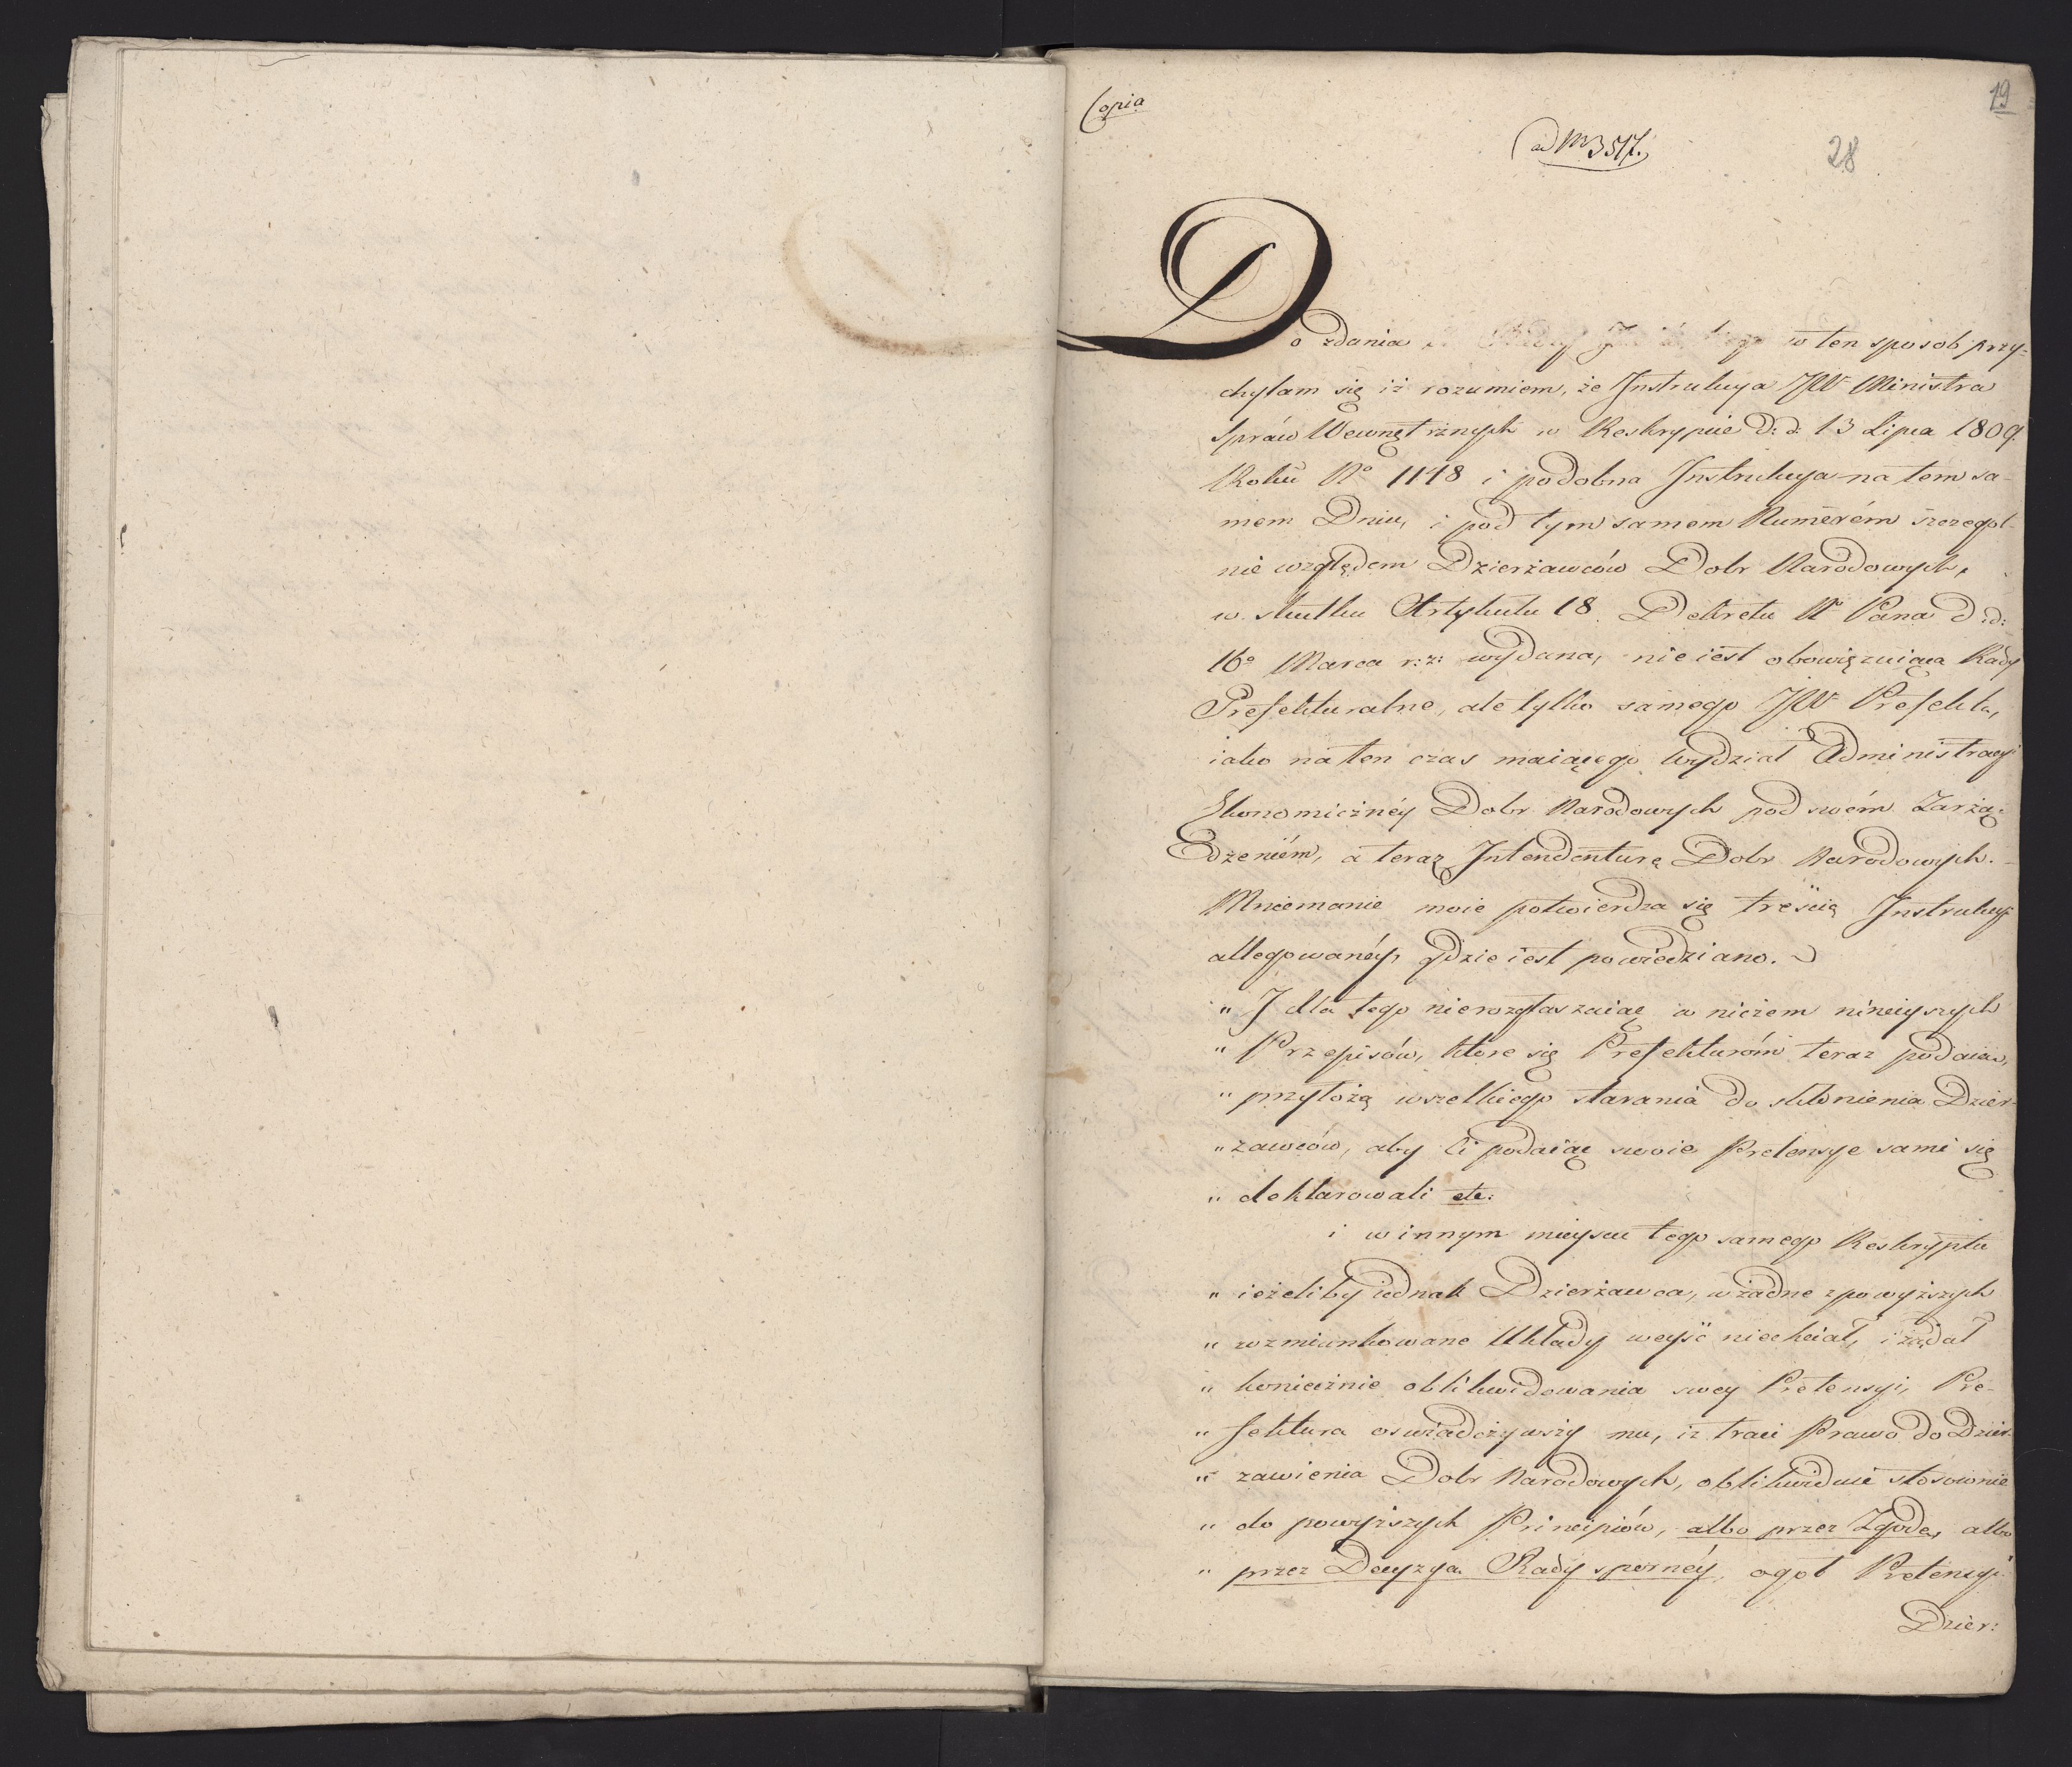 Copia
19
ad Nr 3517.
28
Do zdania w ten sposob przy=
chylam się iż rozumiem, że Instrukcya JW Ministra
Spraw Wewnętrznych w Reskrypcie D: d: 13 Lipca 1809.
Roku No 1148 i podobna Instrukcya na tem sa-
mem Dniu, i pod tym samem Numerém szczegol-
nie względem Dzierżawców Dobr Narodowych,
w skutku Artykułu 18. Dekretu N. Pana D: d:
16o Marca r: z: wydana, nie iest obowięzuiąca Rady
Prefekturalne, ale tylko samego JW Prefekta,
iako na ten czas maiącego wydział Administracyi
Ekonomicznéy Dobr Narodowych pod swém Zarzą=
dzeniém, a teraz Intendenturę Dobr Narodowych.
Mniemanie moie potwierdza się treścią Instrukcyi
allegowanéy, gdzie iest powiedziano.
" I dla tego nierozgłaszaiąc w niczem ninieyszych
" Przepisów, ktore się Prefekturóm teraz podaia,
" przyłożą wszelkiego starania do skłonienia Dzier-
" zawców, aby Ci podaiąc swoie Pretensye sami się
" deklarowali etc:
i w innym mieyscu tego samego Reskryptu
" ieżeliby iednak Dzierżawca, w żadne z powyższych
" wzmiankowane Układy weyść niechciał, i żądał
" koniecznie oblikwidowania swey Pretensyi, Pre-
" fektura oswiadczywszy mu, iz traci Prawo do Dzier-
" zawienia Dobr Narodowych, oblikwiduie stosownie
" do powyższych Principiów, albo przez Zgodę, albo
" przez Decyzya Rady spornéy, ogoł Pretensyi
Dzier: